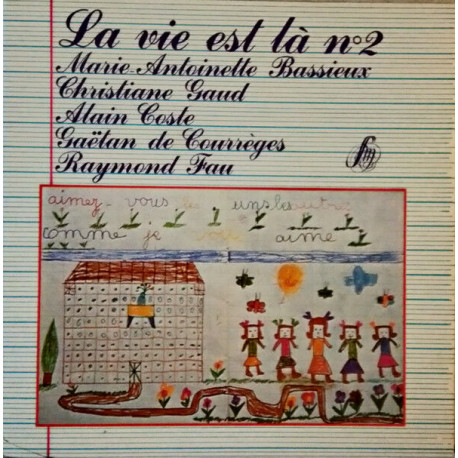 La vie est là n°2
Marie-Antoinette Bassieux
Christiane Gaud
Alain Coste
Gaëtan de Courrèges
Raymond Fau
aimez-vous les uns les autres
comme je vous aime